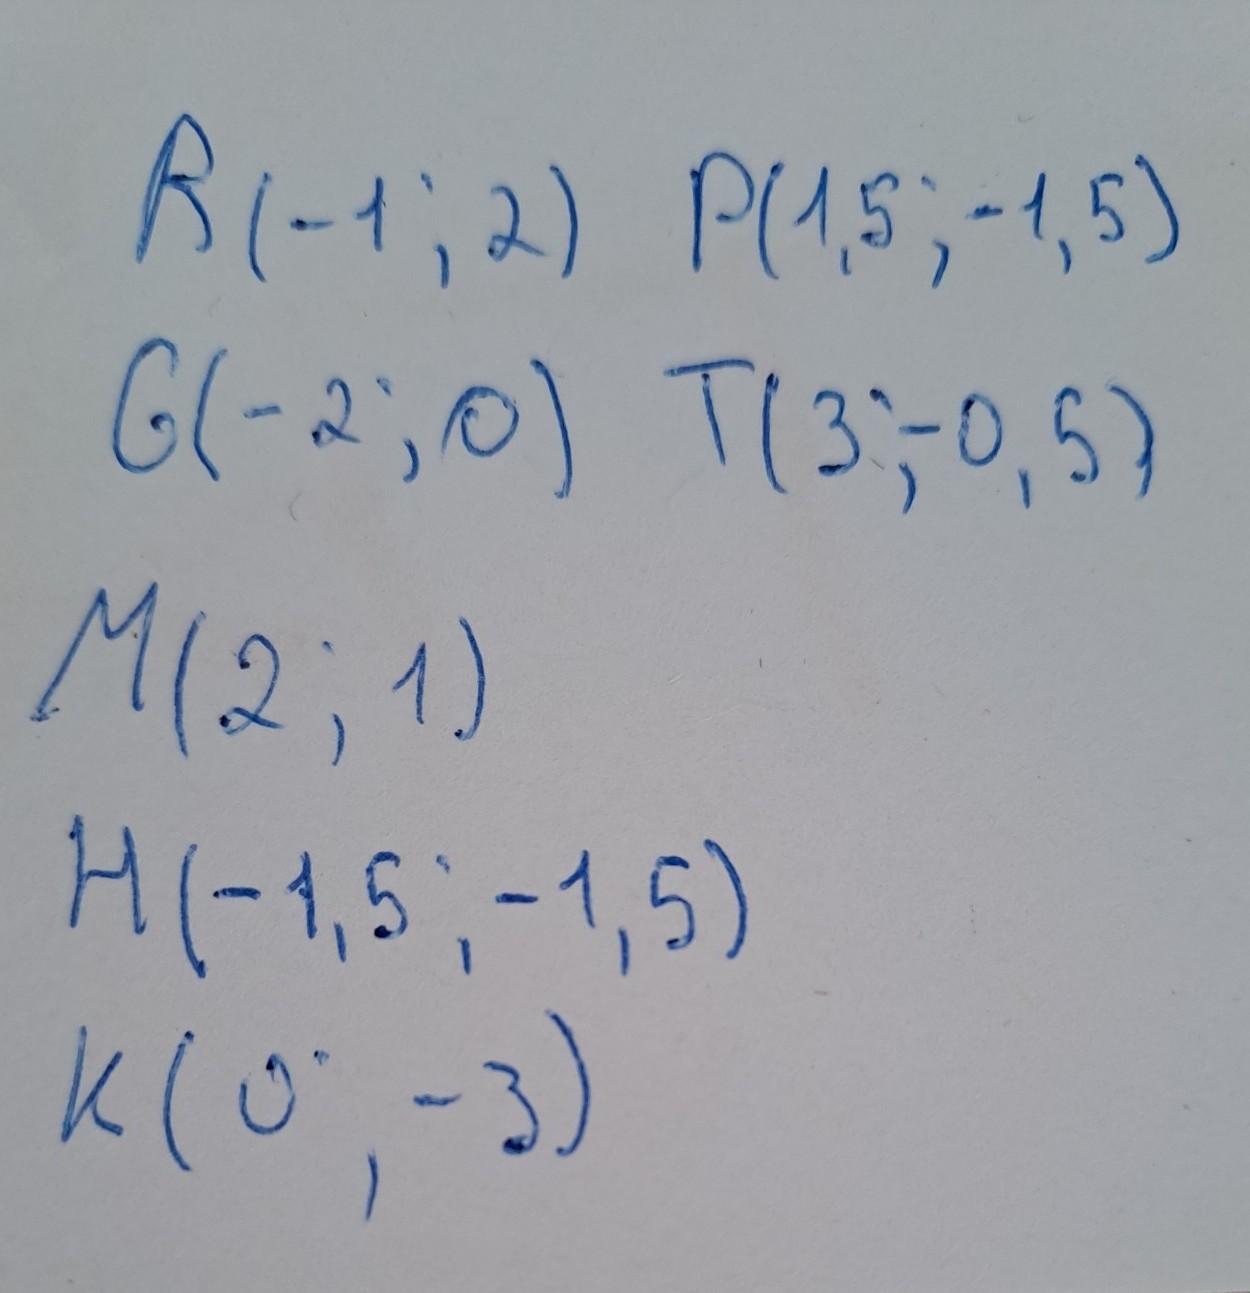 R(-1;2) P(1,5;-1,5)
G(-2;0) T(3;-0,5)
M(2;1)
H(-1,5;-1,5)
K(0;-3)